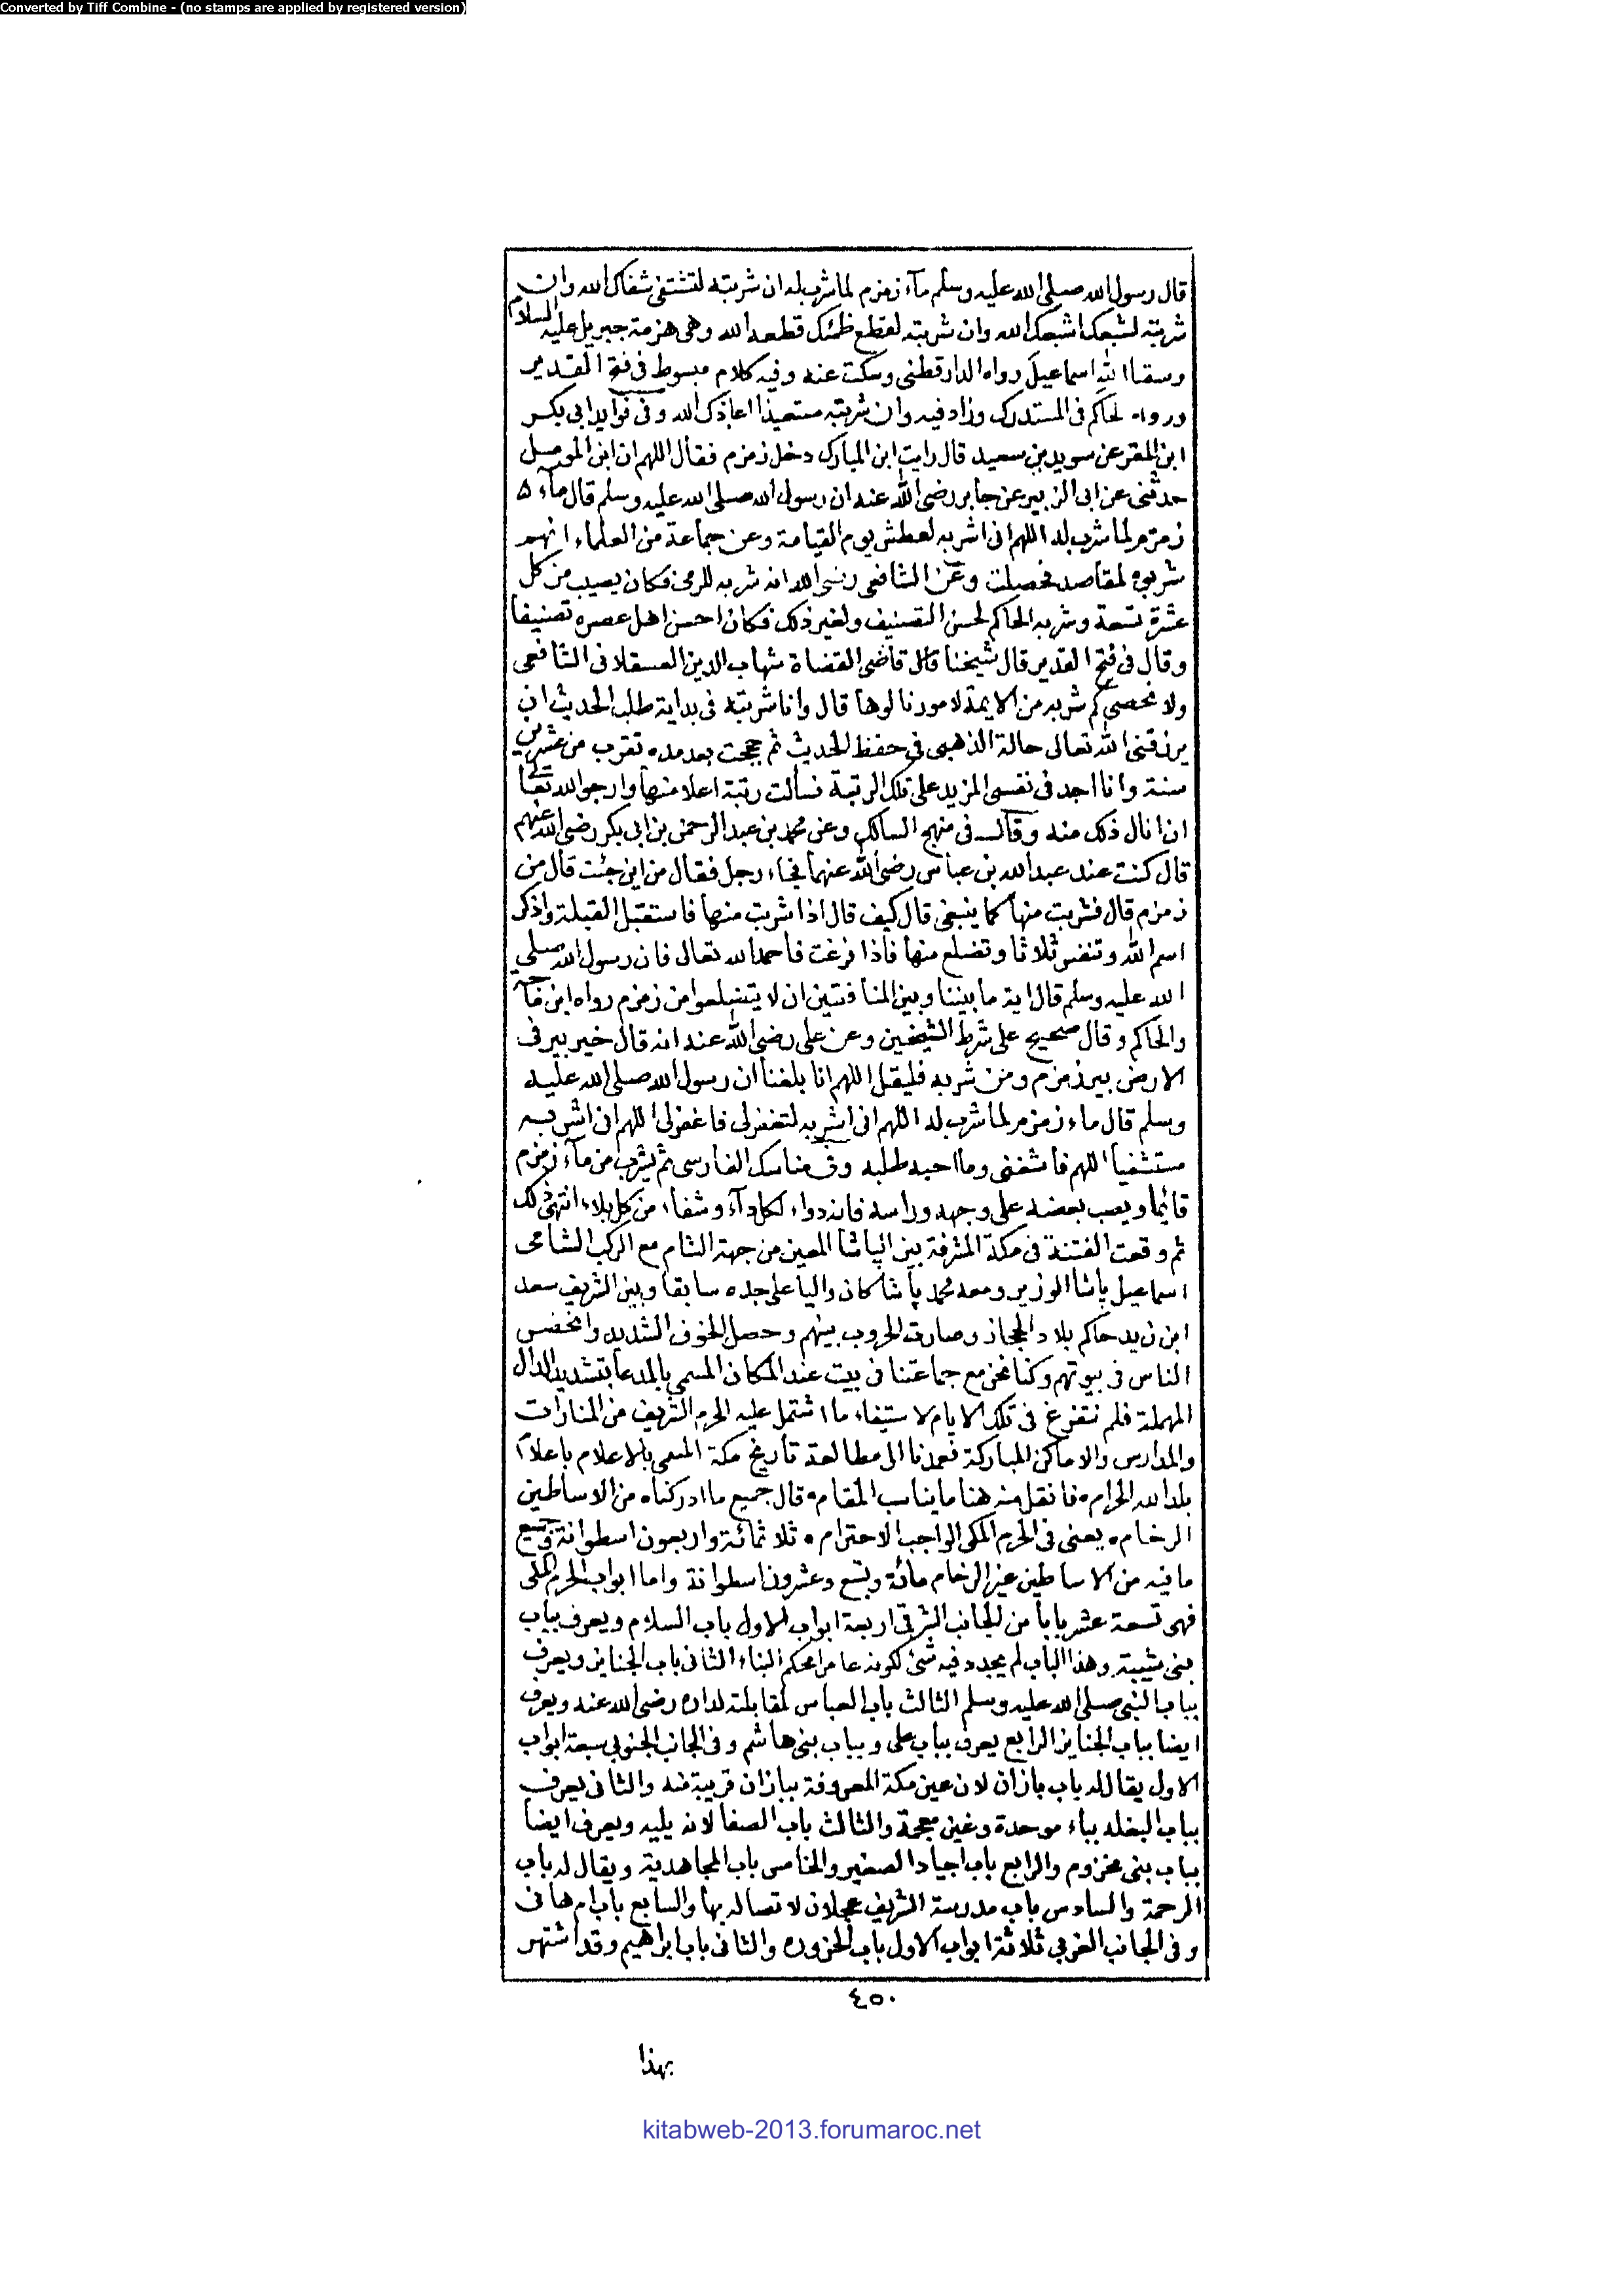 Converted by Tiff Combine - (no stamps are applied by registered version)
قال رسول الله صلى الله عليه وسلم مآء زمزم لما شرب له ان شربته لتشتفى شفاك الله وان
شربته لشبعك اشبعك الله وان شربته لقطع ظمئك قطعه الله وهى هزمة جبريل عليه السلام
وسقيا الله اسماعيل رواه الدارقطنى وسكت عنه وفيه كلام مبسوط فى فتح القدير
ورواه الحاكم فى المستدرك وزاد فيه وان شربته مستعيذا اعاذك الله وفى فوايد ابى بكر
ابن المقر عن سويد بن سعيد قال رايت ابن المبارك دخل زمزم فقال اللهم ان ابن الموصل
حدثنى عن ابى الزبير عن جابر رضى الله عنه ان رسول الله صلى الله عليه وسلم قال مآء
زمزم لما شرب له اللهم انى اشربه لعطش يوم القيامة وعن جماعة من العلماء انهم
شربوه لمقاصد فحصلت وعن الشافعى رضى الله انه شربه للرمى فكان يصيب من كل
عشرة تسعة وشربه الحاكم لحسن التصنيف ولغير ذلك فكان احسن اهل عصره تصنيفا
وقال فى فتح القدير قال شيخنا قال قاضى القضاة شهاب الدين العسقلانى الشافعى
ولا نحصى كم شربه من الايمة لامور نالوها قال وانا شربته فى بداية طلب الحديث ان
يرزقنى الله تعالى حالة الذهبى فى حفظ الحديث ثم حججت بعد مده تقرب من عشرين
سنة وانا اجد فى نفسى المزيد على تلك الرتبة فسألت رتبة اعلا منها وارجو الله تعالى
ان انال ذلك منه وقال فى منهج السالك وعن محمد بن عبد الرحمن بن ابى بكر رضى الله عنهم
قال كنت عند عبد الله بن عباس رضى الله عنهما فجاء رجل فقال من اين جئت قال من
زمزم قال فشربت منها كما ينبغى قال كيف قال اذا شربت منها فاستقبل القبلة واذكر
اسم الله وتنفس ثلاثا وتضلع منها فاذا فرغت فاحمد الله تعالى فان رسول الله صلى
الله عليه وسلم قال اية ما بيننا وبين المنافقين ان لا يتضلعوا من زمزم رواه ابن ماجه
والحاكم وقال صحيح على شرط الشيخين وعن على رضى الله عنه انه قال خير بير فى
الارض بير زمزم ومن شربه فليقل اللهم انا بلغنا ان رسول الله صلى الله عليه
وسلم قال ماء زمزم لما شرب له اللهم انى اشربه لتغفر لى فاغفر لى اللهم انى اشربه
مستشفيا اللهم فاشفنى وما احبه طلبه وفى مناسك الفارسى ثم يشرب من مآء زمزم
قائما ويصب بعضه على وجهه وراسه فانه دواء لكل دآء وشفاء من كل بلاء انتهى ذلك
ثم وقعت الفتنة فى مكة المشرفة بين الباشا المعين من جهة الشام مع الركب الشامى
اسماعيل باشا الوزير ومعه محمد باشا كان واليا على جده سابقا وبين الشريف سعد
ابن زيد حاكم بلاد الحجاز وصارت الحروب بينهم وحصل الخوف الشديد وانحصر
الناس فى بيوتهم وكنا نحن مع جماعتنا فى بيت عند المكان المسمى بالمدعا بتشديد الدال
المهملة فلم نتفرغ فى تلك الايام لاستيفاء ما اشتمل عليه الحرم الشريف من المنارات
والمدارس والاماكن المباركة فعمدنا الى مطالعة تأريخ مكة المسمى بالاعلام باعلام
بلد الله الحرام فانقل منه هنا ما يناسب المقام قال جميع ما ادركناه من الاساطين
الرخام يعنى فى الحرم المكى الواجب الاحترام ثلاثمائة واربعون اسطوانة وجميع
ما فيه من الاساطين غير الرخام مائة وتسع وعشرون اسطوانة واما ابواب الحرم المكى
فهى تسعة عشر بابا من الجانب الشرقى اربعة ابواب الاول باب السلام ويعرف بباب
بنى شيبة وهذا الباب لم يجدد فيه شئ لكونه عامرا محكم البناء الثانى باب الجنايز ويعرف
بباب النبى صلى الله عليه وسلم الثالث باب العباس لمقابلته لداره رضى الله عنه ويعرف
ايضا بباب الجنايز الرابع يعرف بباب على وبباب بنى هاشم وفى الجانب الجنوبى سبعة ابواب
الاول يقال له باب بازان لان عين مكة المعروفة ببازان قريبة منه والثانى يعرف
بباب البغله بباء موحدة وغين معجمة والثالث باب الصفا لانه يليه ويعرف ايضا
بباب بنى مخزوم والرابع باب اجياد الصغير والخامس باب المجاهدية ويقال له باب
الرحمة والسادس باب مدرسة الشريف عجلان لاتصاله بها والسابع باب ام هانى
وفى الجانب الغربى ثلاثة ابواب الاول باب الحزوره والثانى باب ابراهيم وقد اشتهر
٤٥٠
بهذا
kitabweb-2013.forumaroc.net